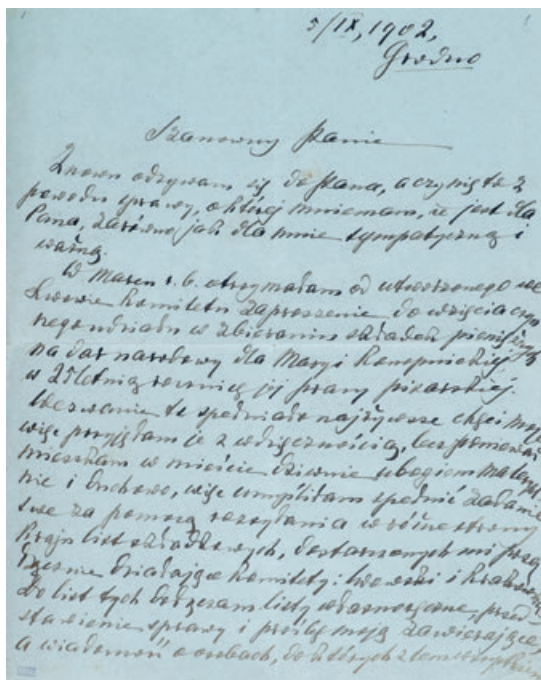 5/IX, 1902,
Grodno
Szanowny Panie
Znowu odzywam się do Pana, a czynię to z
powodu sprawy, o której mniemam, że jest dla
Pana, zarówno jak dla mnie sympatyczną i
ważną.
W Marcu r. b. otrzymałam od utworzonego we
Lwowie Komitetu zaproszenie do wzięcia czyn
nego udziału w zbieraniu składek pieniężnych
na dar narodowy dla Maryi Konopnickiej,
w 25letnią rocznicę jej pracy pisarskiej.
Wezwanie te spełniało najżywsze chęci moje
więc przyjęłam je z wdzięcznością, lecz ponieważ
mieszkam w mieście dziwnie ubogiem materyal
nie i duchowo, więc umyśliłam spełnić zadanie
swe za pomocą rozsyłania w różne strony
kraju list składkowych, dostarczonych mi przez
łącznie działające komitety: lwowski i krakowski
Do list tych dołączam listy własnoręczne, przed-
stawienie sprawy i prośbę moją zawierające,
a wiadomość o osobach, do których z tem